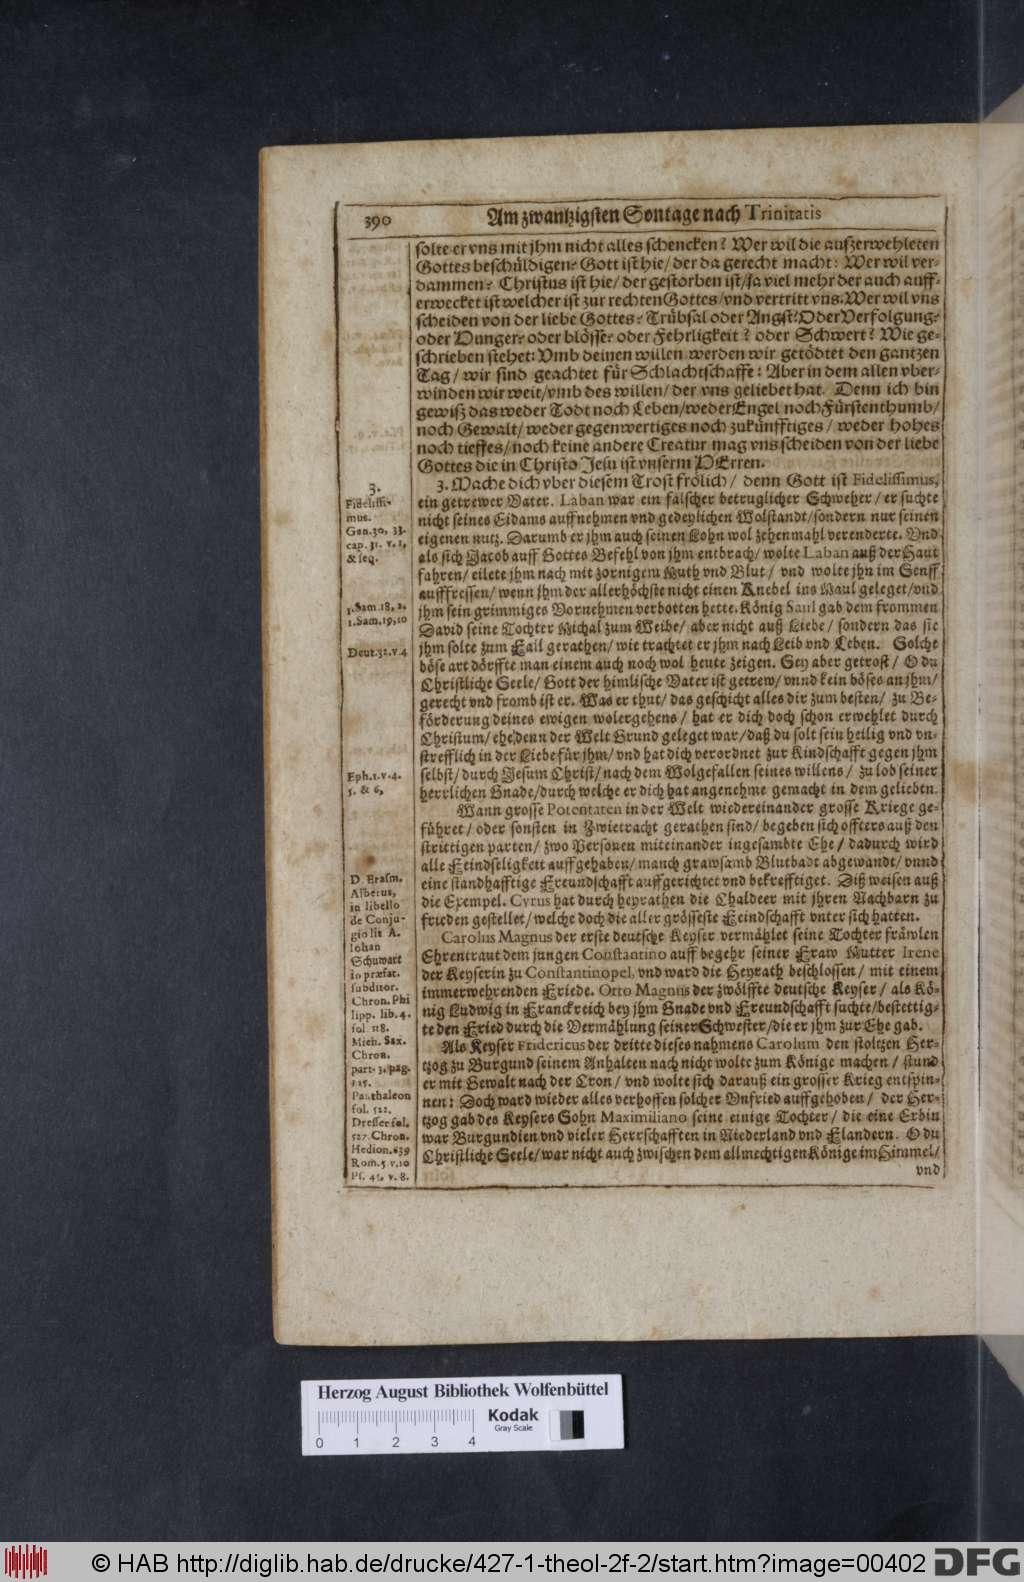 390 Am zwantzigsten Sontage nach Trinitatis
solte er vns mit jhm nicht alles schencken? Wer wil die außerwehleten
Gottes beschüldigen? Gott ist hie/ der da gerecht macht: Wer wil ver-
dammen? Christus ist hie/ der gestorben ist/ja viel mehr der auch auff-
erwecket ist welcher ist zur rechten Gottes/vnd vertritt vns. Wer wil vns
scheiden von der liebe Gottes? Trübsal oder Angst? Oder Verfolgung?
oder Hunger? oder blösse? oder Fehrligkeit? oder Schwert? Wie ge-
schrieben stehet: Vmb deinen willen werden wir getödtet den gantzen
Tag/ wir sind geachtet für Schlachtschaffe: Aber in dem allen vber-
winden wir weit/vmb des willen/ der vns geliebet hat. Denn ich bin
gewiß das weder Todt noch Leben/weder Engel noch Fürstenthumb/
noch Gewalt/ weder gegenwertiges noch zukünfftiges/ weder hohes
noch tieffes/ noch keine andere Creatur mag vns scheiden von der liebe
Gottes die in Christo Jesu ist vnserm HErren.
3. Mache dich vber diesem Trost frölich/ denn Gott ist Fidelissimus,
ein getrewer Vater. Laban war ein falscher betruglicher Schweher/ er suchte
nicht seines Eidams auffnehmen vnd gedeylichen Wolstandt/sondern nur seinen
eigenen nutz. Darumb er jhm auch seinen Lohn wol zehenmahl verenderte. Vnd
als sich Jacob auff Gottes Befehl von jhm entbrach/ wolte Laban auß der Haut
fahren/ eilete jhm nach mit zornigem Muth vnd Blut/ vnd wolte jhn im Senff
aufffressen/ wenn jhm der allerhöchste nicht einen Knebel ins Maul geleget/vnd
jhm sein grimmiges Vornehmen verbotten hette. König Saul gab dem frommen
David seine Tochter Michal zum Weibe/ aber nicht auß Liebe/ sondern das sie
jhm solte zum Fall gerathen/ wie trachtet er jhm nach Leib vnd Leben. Solche
böse art dörffte man einem auch noch wol heute zeigen. Sey aber getrost/ O du
Christliche Seele/ Gott der himlische Vater ist getrew/ vnnd kein böses an jhm/
gerecht vnd fromb ist er. Was er thut/ das geschicht alles dir zum besten/ zu Be-
förderung deines ewigen wolergehens/ hat er dich doch schon erwehlet durch
Christum/ ehe denn der Welt Grund geleget war/ daß du solt sein heilig vnd vn-
strefflich in der Liebe für jhm/ vnd hat dich verordnet zur Kindschafft gegen jhm
selbst/ durch Jesum Christ/ nach dem Wolgefallen seines willens/ zu lob seiner
herrlichen Gnade/durch welche er dich hat angenehme gemacht in dem geliebtn.
Wann grosse Potentaten in der Welt wiedereinander grosse Kriege ge-
führet/ oder sonsten in Zwietracht gerathen sind/ begeben sich offters auß den
strittigen parten/ zwo Personen miteinander ingesambte Ehe/ dadurch wird
alle Feindseligkeit auffgehaben/ manch grawsamb Blutbadt abgewandt/ vnnd
eine standhafftige Freundschafft auffgerichtet vnd bekrefftiget. Diß weisen auß
die Exempel. Cyrus hat durch heyrathen die Chaldeer mit jhren Nachbarn zu
frieden gestellet/ welche doch die aller grösseste Feindschafft vnter sich hatten.
Carolus Magnus der erste deutsche Keyser vermählet seine Tochter fräwlen
Ehrentraut dem jungen Constantino auff begehr seiner Fraw Mutter Irene
der Keyserin zu Constantinopel, vnd ward die Heyrath beschlossen/ mit einem
immerwehrenden Friede. Otto Magnus der zwölffte deutsche Keyser/ als Kö-
nig Ludwig in Franckreich bey jhm Gnade vnd Freundschafft suchte/bestettig-
te den Fried durch die Vermählung seiner Schwester/die er jhm zur Ehe gab.
Als Keyser Fridericus der dritte dieses nahmens Carolum den stoltzen Her-
tzog zu Burgund seinem Anhalten nach nicht wolte zum Könige machen/ stund
er mit Gewalt nach der Cron/ vnd wolte sich darauß ein grosser Krieg entspin-
nen: Doch ward wieder alles verhoffen solcher Vnfried auffgehoben/ der Her-
tzog gab des Keysers Sohn Maximiliano seine einige Tochter/ die eine Erbin
war Burgundien vnd vieler Herrschafften in Niederland vnd Flandern. O du
Christliche Seele/ war nicht auch zwischen dem allmechtigen Könige im Himmel/
vnd
3.
Fidelissi-
mus.
Gen. 30, 33.
cap. 31. v. 1,
& seq.
1. Sam. 18, 2.
1. Sam. 19, 10
Deut. 32. v. 4
Eph. 1. v. 4.
5. & 6,
D. Erasm.
Alberus,
in libello
de Conju-
gio lit A.
Iohan
Schuwart
in præfat.
subditor.
Chron. Phi
lipp. lib. 4.
fol 118.
Mich. Sax.
Chron.
part. 3. pag.
Panthaleon
fol. 522.
Dresser fol.
527. Chron.
Hedion. 639
Rom. 5 v. 10
Ps. 45, v. 8.
Herzog August Bibliothek Wolfenbüttel
Kodak
Gray Scale
0 1 2 3 4
© HAB http://diglib.hab.de/drucke/427-1-theol-2f-2/start.htm?image=00402 DFG